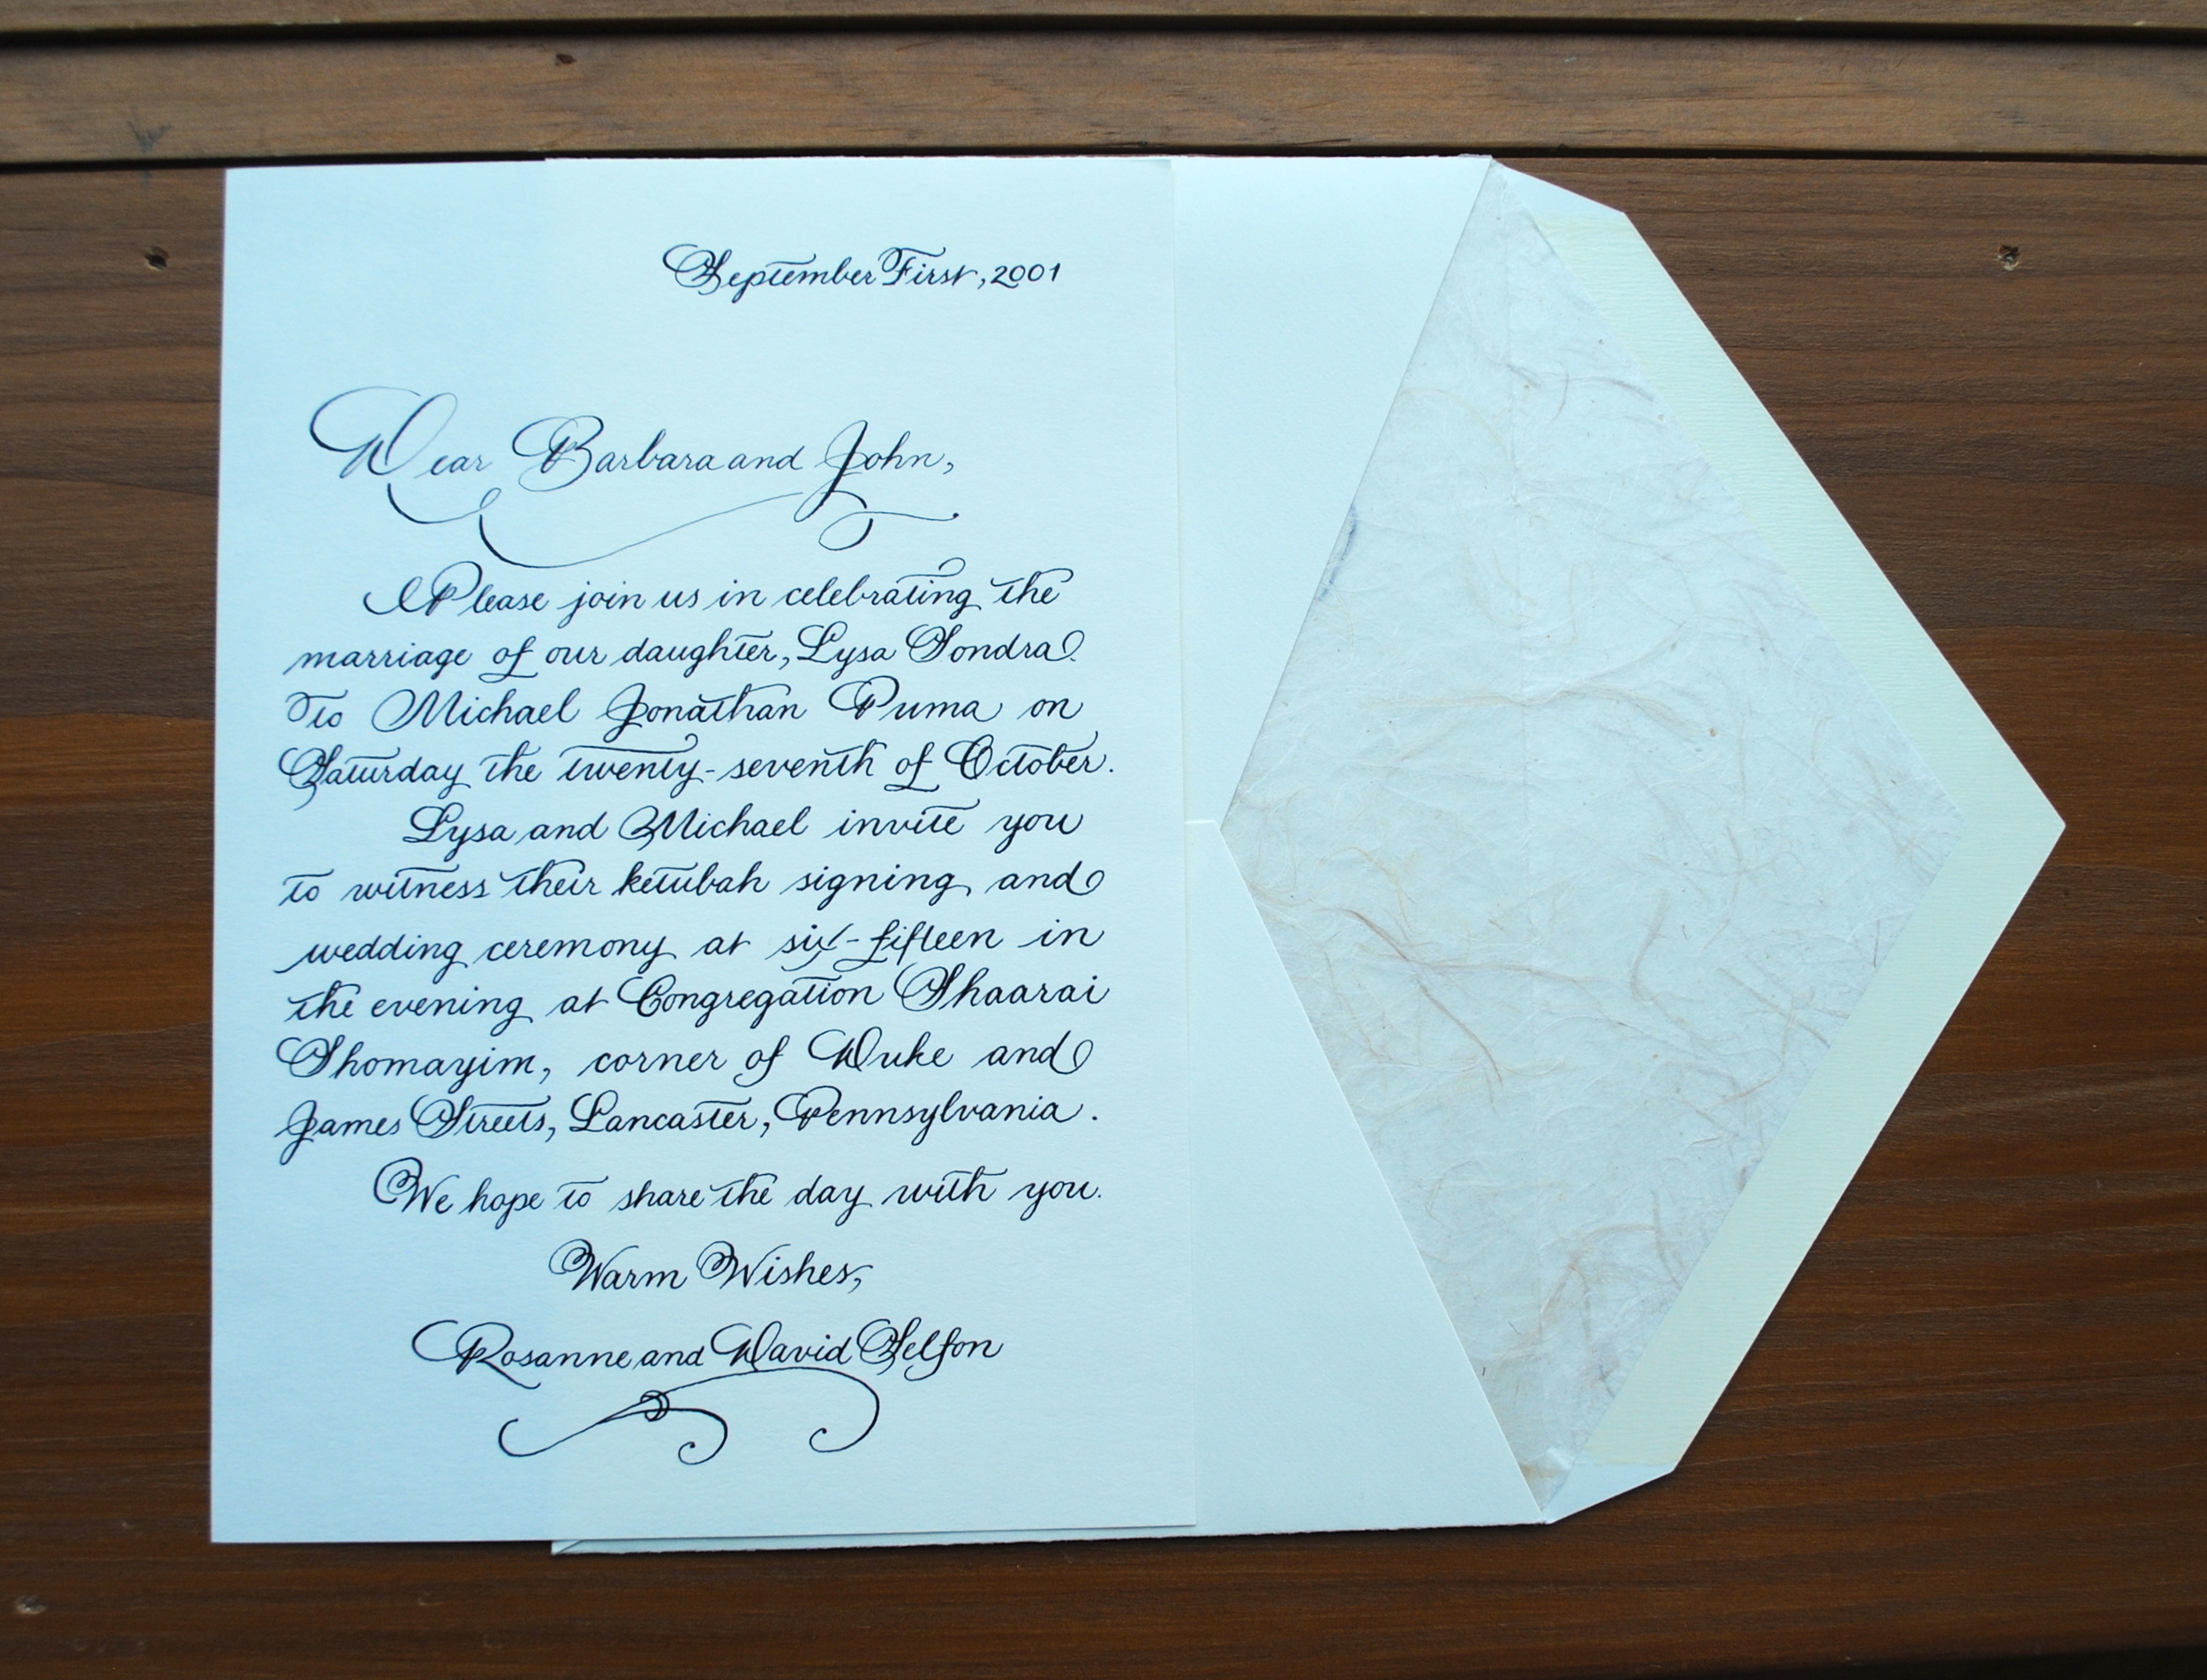 September First, 2001
Dear Barbara and John,
Please join us in celebrating the
marriage of our daughter, Lysa Sondra
to Michael Jonathan Puma on
Saturday the twenty-seventh of October.
Lysa and Michael invite you
to witness their ketubah signing and
wedding ceremony at six-fifteen in
the evening at Congregation Shaarai
Shomayim, corner of Duke and
James Streets, Lancaster, Pennsylvania.
We hope to share the day with you.
Warm Wishes,
Rosanne and David Selfon